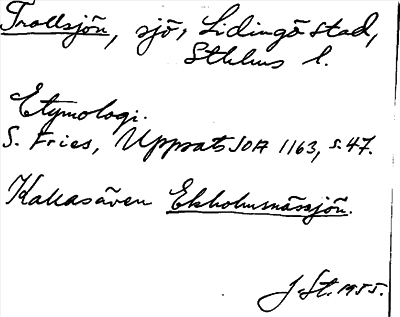 Trollsjön, sjö, Lidingö stad,
Sthlms l.
Etymologi.
S. Fries, Uppsats SOA 1163, s. 47.
Kallas även Ekholmsnässjön.
J. St. 1955.